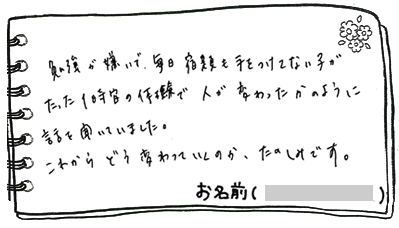 勉強が嫌いで、毎日宿題も手をつけてない子が
たった1時間の体験で人が変わったかのように
話を聞いていました。
これからどう変わっていくのか、たのしみです。
お名前(        )